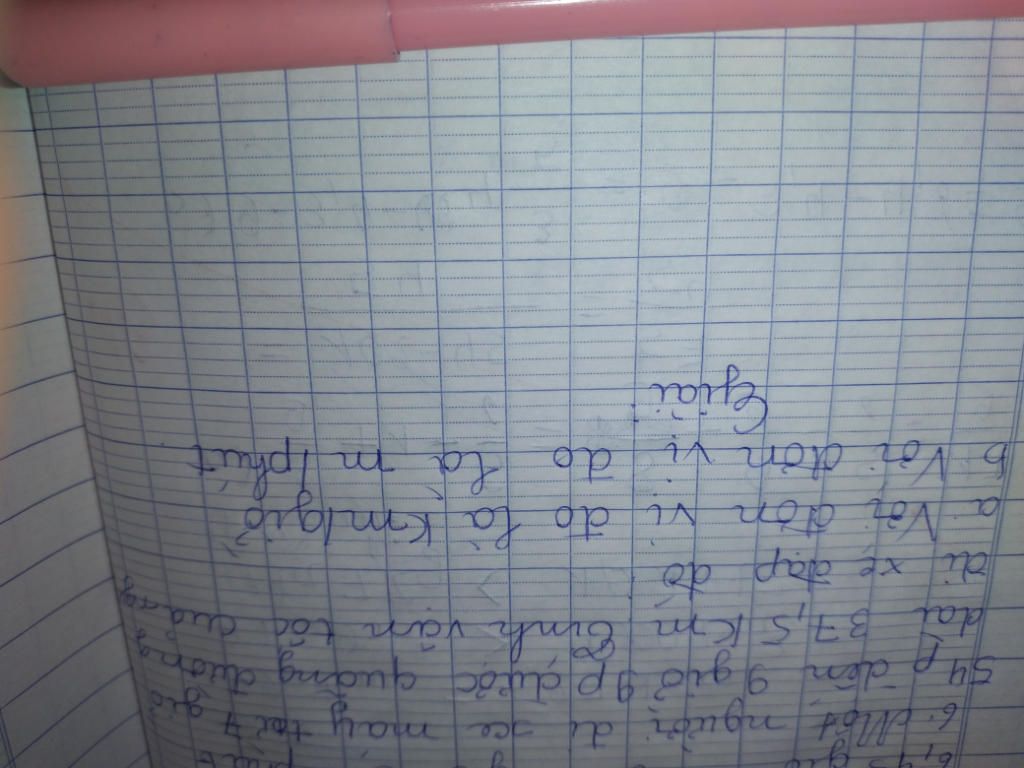 6,45 giờ
6. Một người đi xe máy từ 7 giờ
54 p đến 9 giờ 9p được quãng đường
dài 37,5 Km Tính vận tốc của
đi xe đạp đó
a. Với đơn vị đo là Km/giờ
b. Với đơn vị đo là m/phút
Giải: